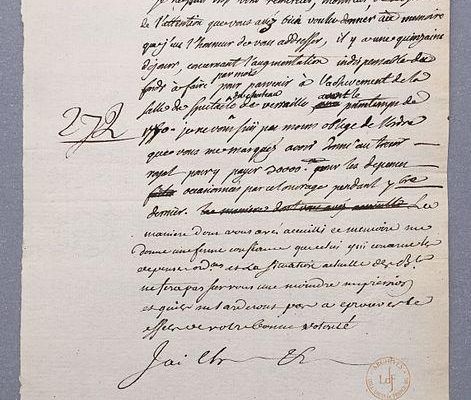 de l'attention que vous avez bien voulu donner au memoire
que j'ai eu l'honneur de vous addresser, il y a une quinzaine
de jours, concernant l'augmentation indispensable de
fonds à faire par mois pour parvenir à l'achevement de la
salle de spectacle du chateau de versailles avant le printemps de
272
1770. je ne vous suis pas moins obligé de l'ordre
que vous me marquez avoir donné au tresor
royal pour y payer 20000 pour les depenses
occasionnées par cet ouvrage pendant 7bre
dernier. la maniere dont vous avez accueilli La
maniere dont vous avez accueilli ce memoire me
donne une ferme confiance que celui qui concerne les
depenses ord.res et la situation actuelle des
ne fera pas sur vous une moindre impression
et que je ne tarderai pas a eprouver les
effets de votre bonne volonté
J'ai l'hr &c
ARCHIVES